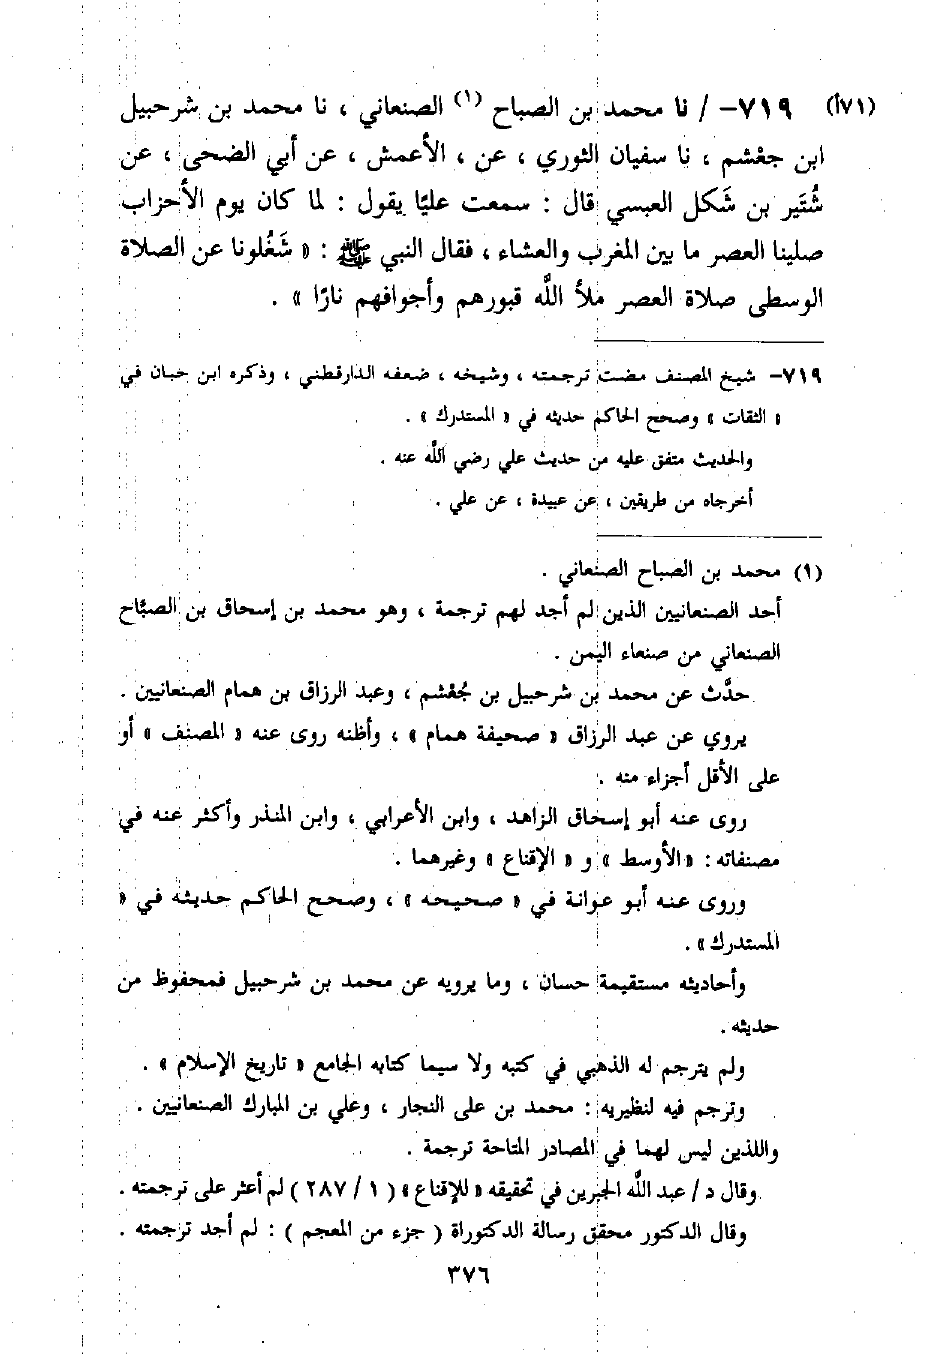 (٧١أ) ٧١٩- / نا محمد بن الصباح (١) الصنعاني ، نا محمد بن شرحبيل
ابن جعْشم ، نا سفيان الثوري ، عن ، الأعمش ، عن أبي الضحى ، عن
شُتَير بن شَكل العبسي قال : سمعت عليًا يقول : لما كان يوم الأحزاب
صلينا العصر ما بين المغرب والعشاء ، فقال النبي ﷺ : « شَغُلونا عن الصلاة
الوسطى صلاة العصر ملأ اللَّه قبورهم وأجوافهم نارًا » .
٧١٩- شيخ المصنف مضت ترجمته ، وشيخه ، ضعفه الدارقطني ، وذكره ابن حبان في
« الثقات » وصحح الحاكم حديثه في « المستدرك » .
والحديث متفق عليه من حديث علي رضي اللَّه عنه .
أخرجاه من طريقين ، عن عبيدة ، عن علي .
(١) محمد بن الصباح الصنعاني .
أحد الصنعانيين الذين لم أجد لهم ترجمة ، وهو محمد بن إسحاق بن الصبَّاح
الصنعاني من صنعاء اليمن .
حدَّث عن محمد بن شرحبيل بن جُعْشم ، وعبد الرزاق بن همام الصنعانيين .
يروي عن عبد الرزاق « صحيفة همام » ، وأظنه روى عنه « المصنف » أو
على الأقل أجزاء منه .
روى عنه أبو إسحاق الزاهد ، وابن الأعرابي ، وابن المنذر وأكثر عنه في
مصنفاته : «الأوسط » و « الإقناع » وغيرهما .
وروى عنه أبو عوانة في « صحيحه » ، وصحح الحاكم حديثه في «
المستدرك» .
وأحاديثه مستقيمة حسان ، وما يرويه عن محمد بن شرحبيل فمحفوظ من
حديثه .
ولم يترجم له الذهبي في كتبه ولا سيما كتابه الجامع « تاريخ الإسلام » .
وترجم فيه لنظيريه : محمد بن على النجار ، وعلي بن المبارك الصنعانيين .
واللذين ليس لهما في المصادر المتاحة ترجمة .
وقال د/ عبد اللَّه الجبرين في تحقيقه «للإقناع» ( ١ / ٢٨٧ ) لم أعثر على ترجمته .
وقال الدكتور محقق رسالة الدكتوراة ( جزء من المعجم ) : لم أجد ترجمته .
٣٧٦